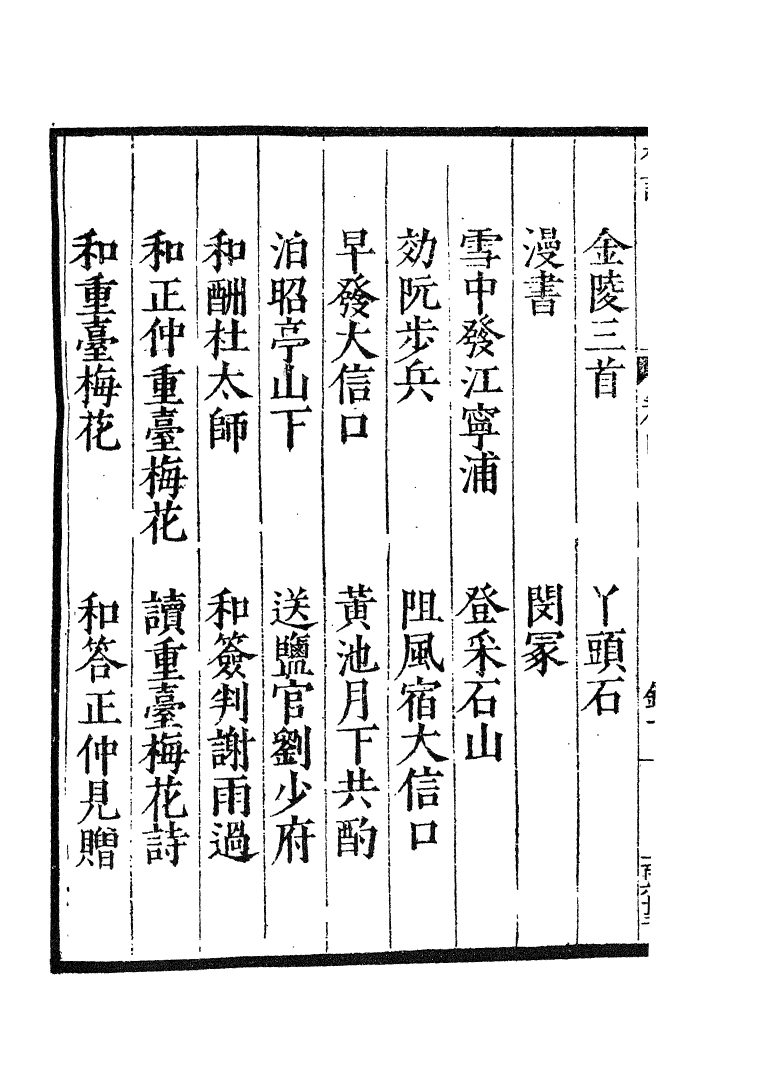 金陵三首　丫頭石
漫書　閔冢
雪中發江寧浦　登采石山
効阮步兵　阻風宿大信口
早發大信口　黃池月下共酌
泊昭亭山下　送鹽官劉少府
和酬杜太師　和簽判謝雨過
和正仲重臺梅花　讀重臺梅花詩
和重臺梅花　和答正仲見贈